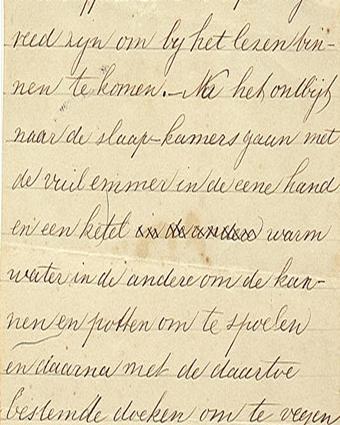 reed zyn om by het lezen bin-
nen te komen. - Na het ontbijt
naar de slaap-kamers gaan met
de vuil emmer in de eene hand
en een ketel in de andere warm
water in de andere om de kan-
nen en potten om te spoelen
en daarna met de daartoe
bestemde doeken om te vegen